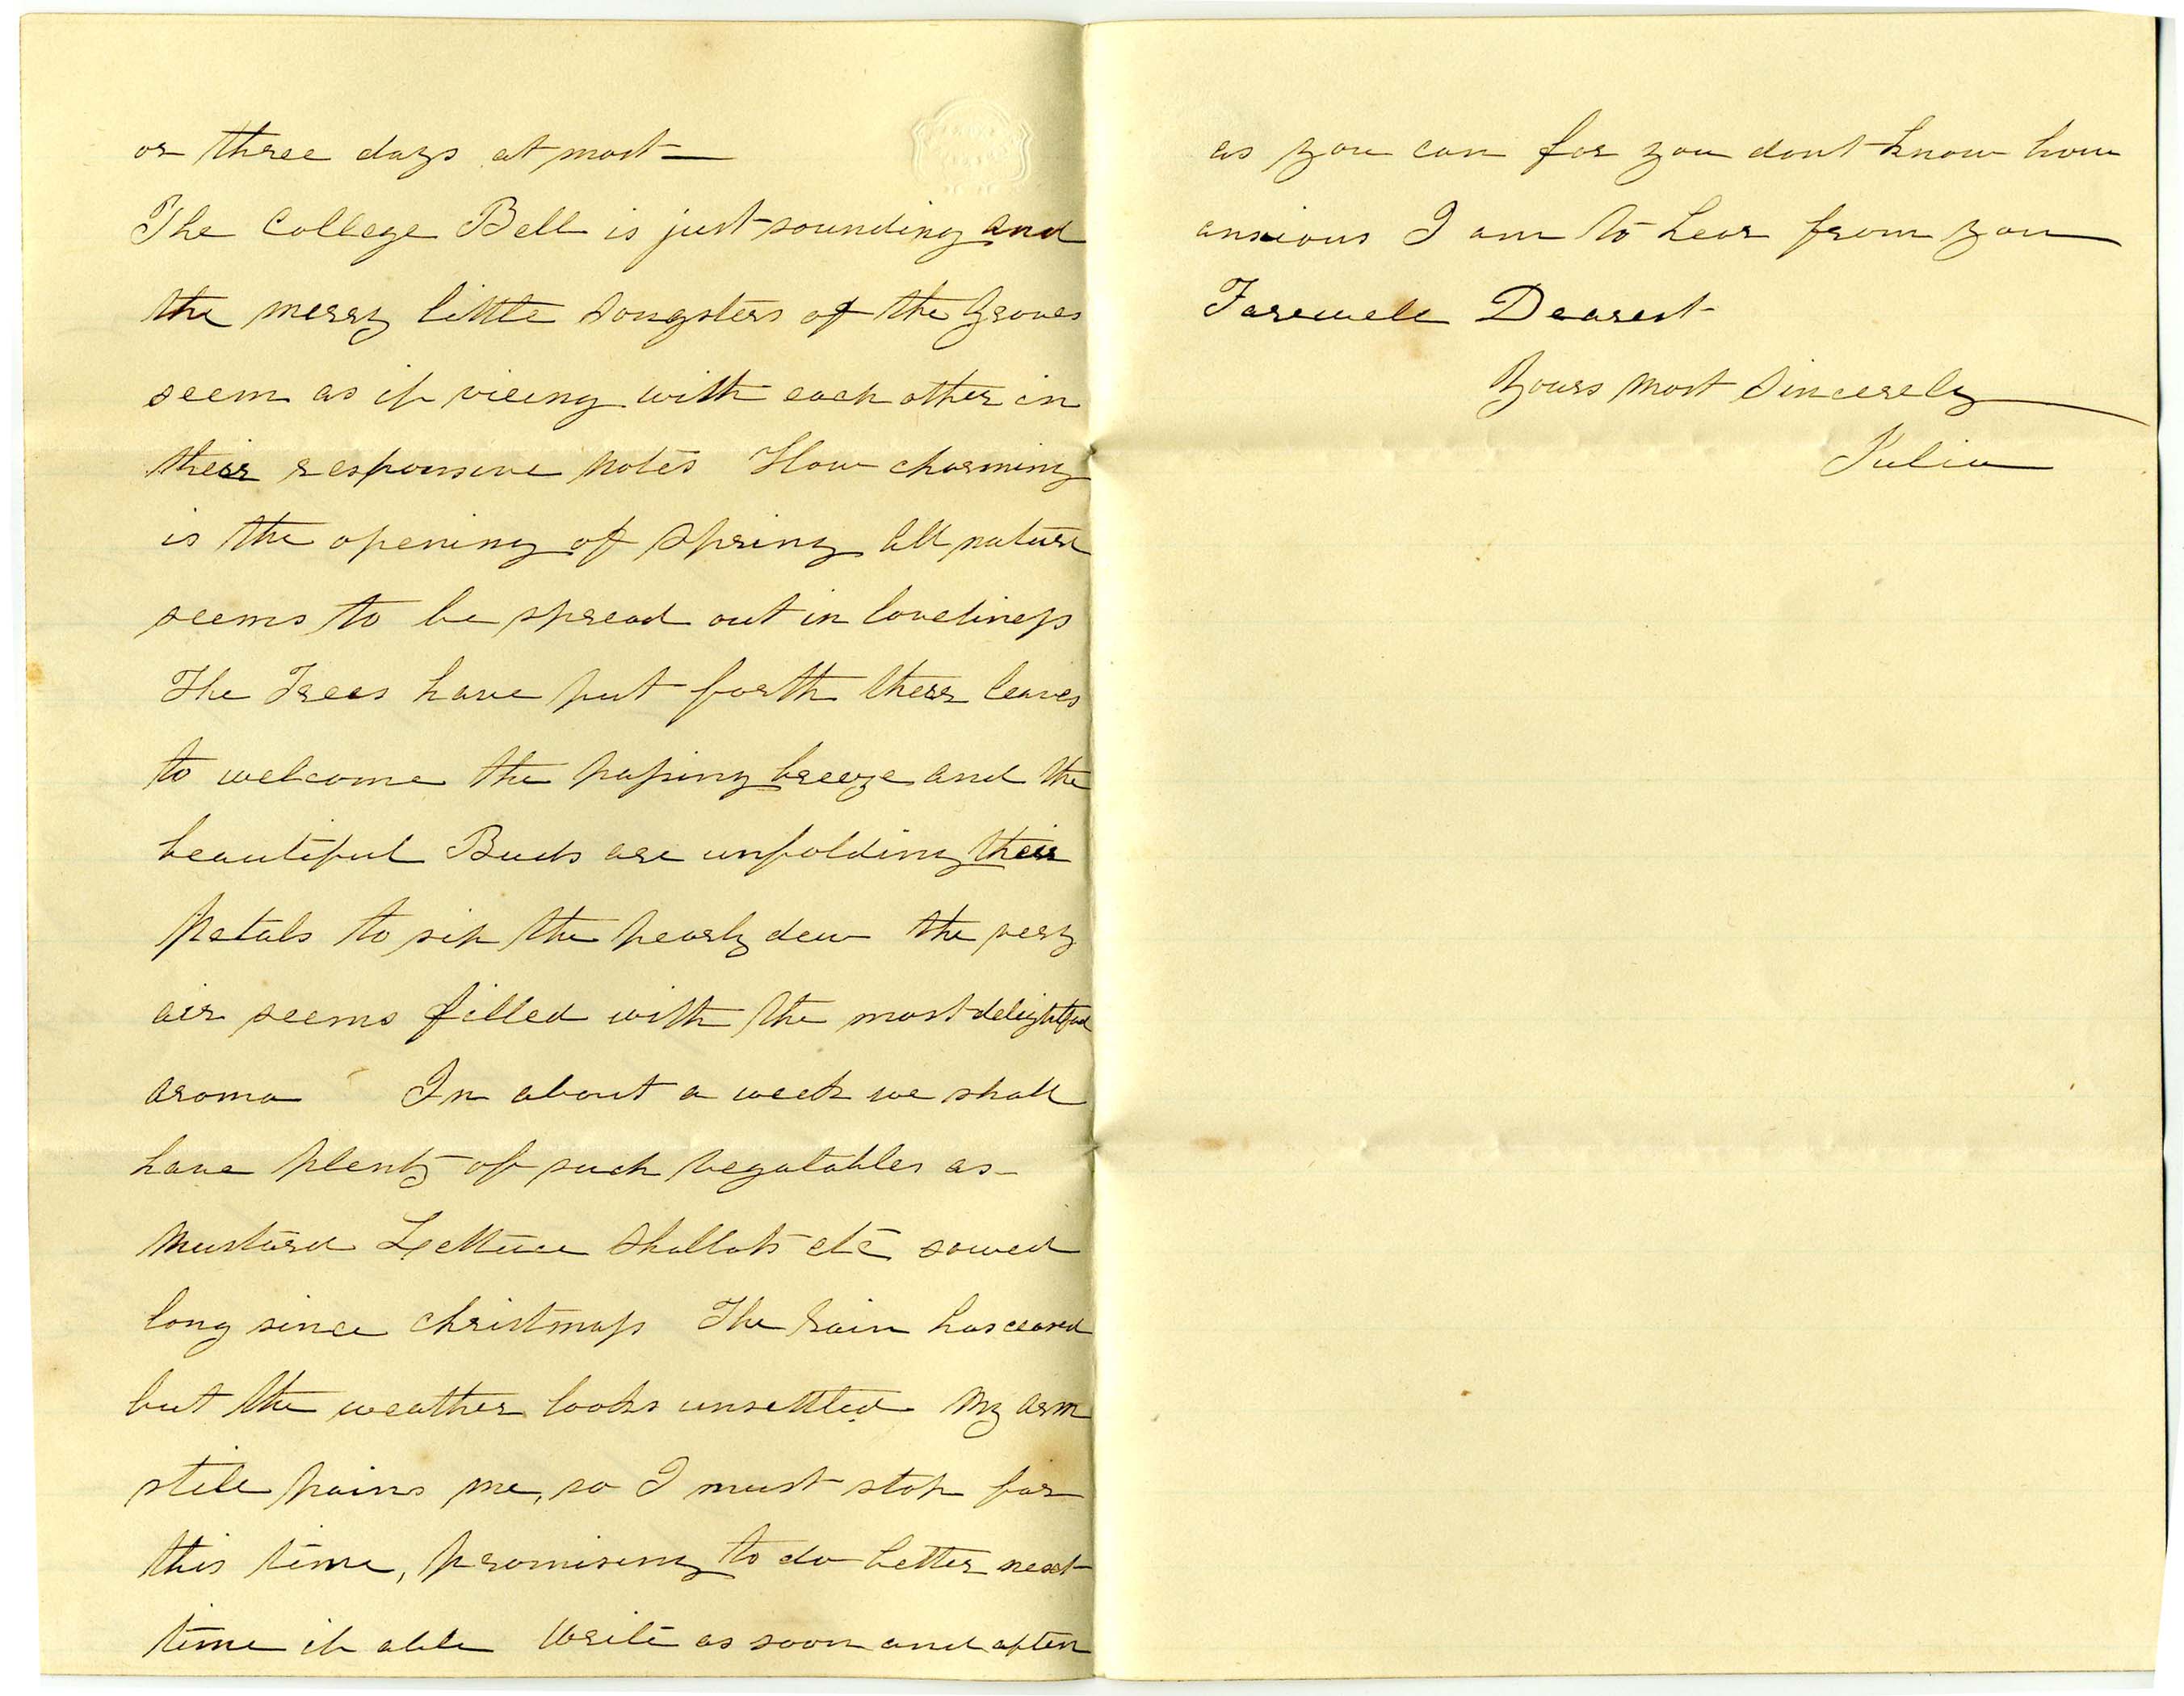 or three days at most—
The College Bell is just sounding and
the merry little songsters of the Groves
seem as if vieing with each other in
their responsive notes How charming
is the opening of Spring All nature
seems to be spread out in loveliness
The Trees have put forth their leaves
to welcome the passing breeze and the
beautiful Buds are unfolding their
Petals to sip the pearly dew the very
air seems filled with the most delightful
aroma In about a week we shall
have plenty of such vegatables as
Mustard Lettuce Shallots etc sowed
long since christmass The rain has ceased
but the weather looks unsettled My arm
still pains me, so I must stop for
this time, promising to do better next
time if able Write as soon and often
as you can for you dont know how
anxious I am to hear from you
Farewell Dearest
Yours Most Sincerely
Julia